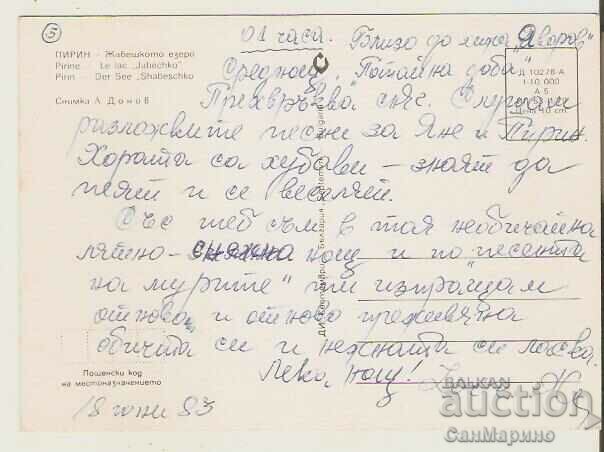 5
01 часа. Близо до хижа „Яворов"
ПИРИН - Жабешкото езеро
Pirine Le lac "Jabechko"
Pirin - Der See "Shabeschko"
Среднощ. „Потайна доба"
Снимка Л. Донов
Д 10278-А
1-10,000
А 5
Цена 10 ст.
Прехвръква сняг. Слушам
разлажвите песни за Яне и Пирин.
Хората са хубави – знаят да
пеят и се веселят.
Със теб съм в тая необичайна
лятно - снежна нощ и по песента
на мурите" ти изпращам
отново и отново предсвятна
обичта си и нежността си ласкава.
Лека нощ!
Пощенски код
на местоназначението
18 юни 83
BALKAN
auction
СанМарино